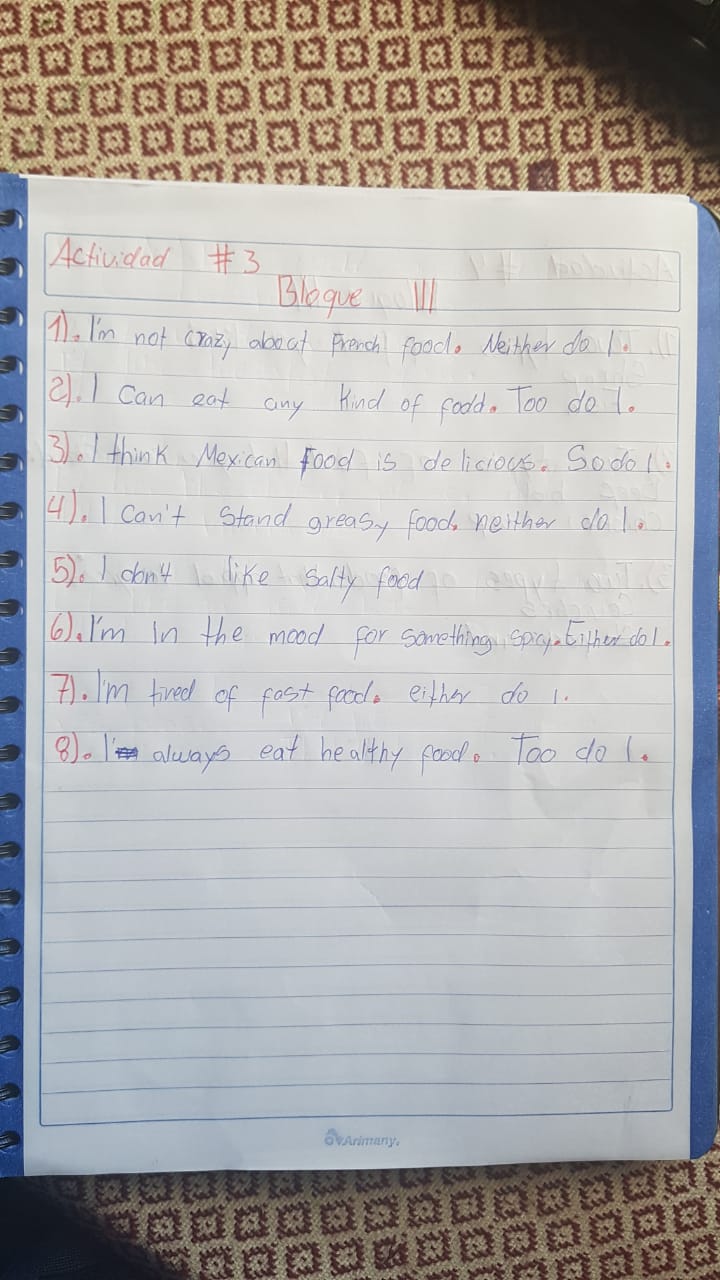 Actividad #3
Bloque III
1). I'm not crazy about French food. Neither do I.
2). I can eat any kind of fodd. Too do I.
3). I think Mexican food is delicious. So do I.
4). I can't stand greasy food. neither do I.
5). I don't like salty food
6). I'm in the mood for something spicy. Either do I.
7). I'm tired of fast food. either do I.
8). I always eat healthy food. Too do I.
Arimany.